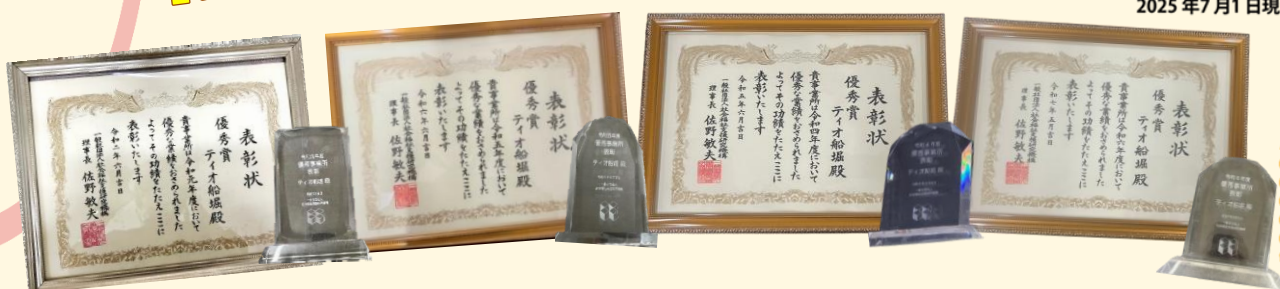 2025年7月1日現
表彰状
優秀賞
ティオ船堀殿
貴事業所は令和元年度において
優秀な業績をおさめられました
よってその功績をたたえここに
表彰いたします
令和二年六月吉日
理事長 佐野敏夫
優秀事業所
表彰
ティオ船堀 殿
表彰状
優秀賞
ティオ船堀殿
貴事業所は令和五年度において
優秀な業績をおさめられました
よってその功績をたたえここに
表彰いたします
令和六年六月吉日
理事長 佐野敏夫
優秀事業所
表彰
ティオ船堀 殿
表彰状
優秀賞
ティオ船堀殿
貴事業所は令和四年度において
優秀な業績をおさめられました
よってその功績をたたえここに
表彰いたします
令和五年六月吉日
理事長 佐野敏夫
優秀事業所
表彰
ティオ船堀 殿
表彰状
優秀賞
ティオ船堀殿
貴事業所は令和六年度において
優秀な業績をおさめられました
よってその功績をたたえここに
表彰いたします
令和七年六月吉日
理事長 佐野敏夫
優秀事業所
表彰
ティオ船堀 殿